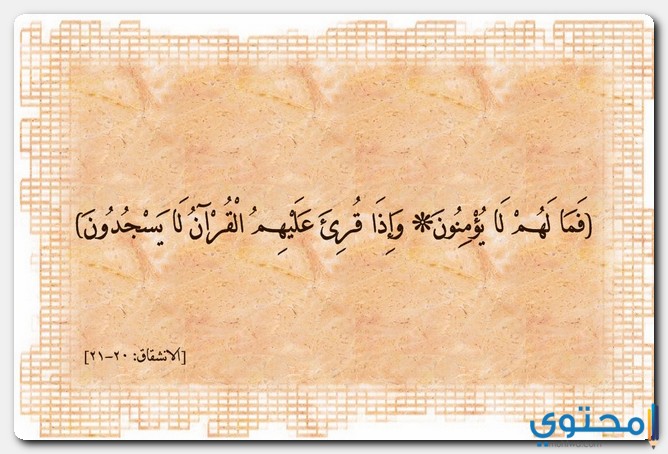 (فَمَا لَهُمْ لَا يُؤْمِنُونَ* وَإِذَا قُرِئَ عَلَيْهِمُ الْقُرْآنُ لَا يَسْجُدُونَ)
[الانشقاق: ٢٠-٢١]
محتوى